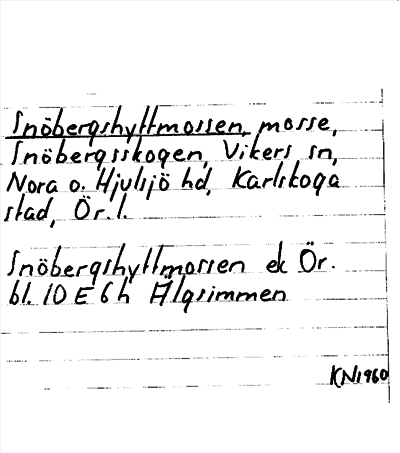 Snöbergshyttmossen, mosse,
Snöbergsskogen, Vikers sn,
Nora o. Hjulsjö hd, Karlskoga
stad, Ör. l.
Snöbergshyttmossen ek Ör.
bl. 10 E 6 h Älgsimmen
KN1960